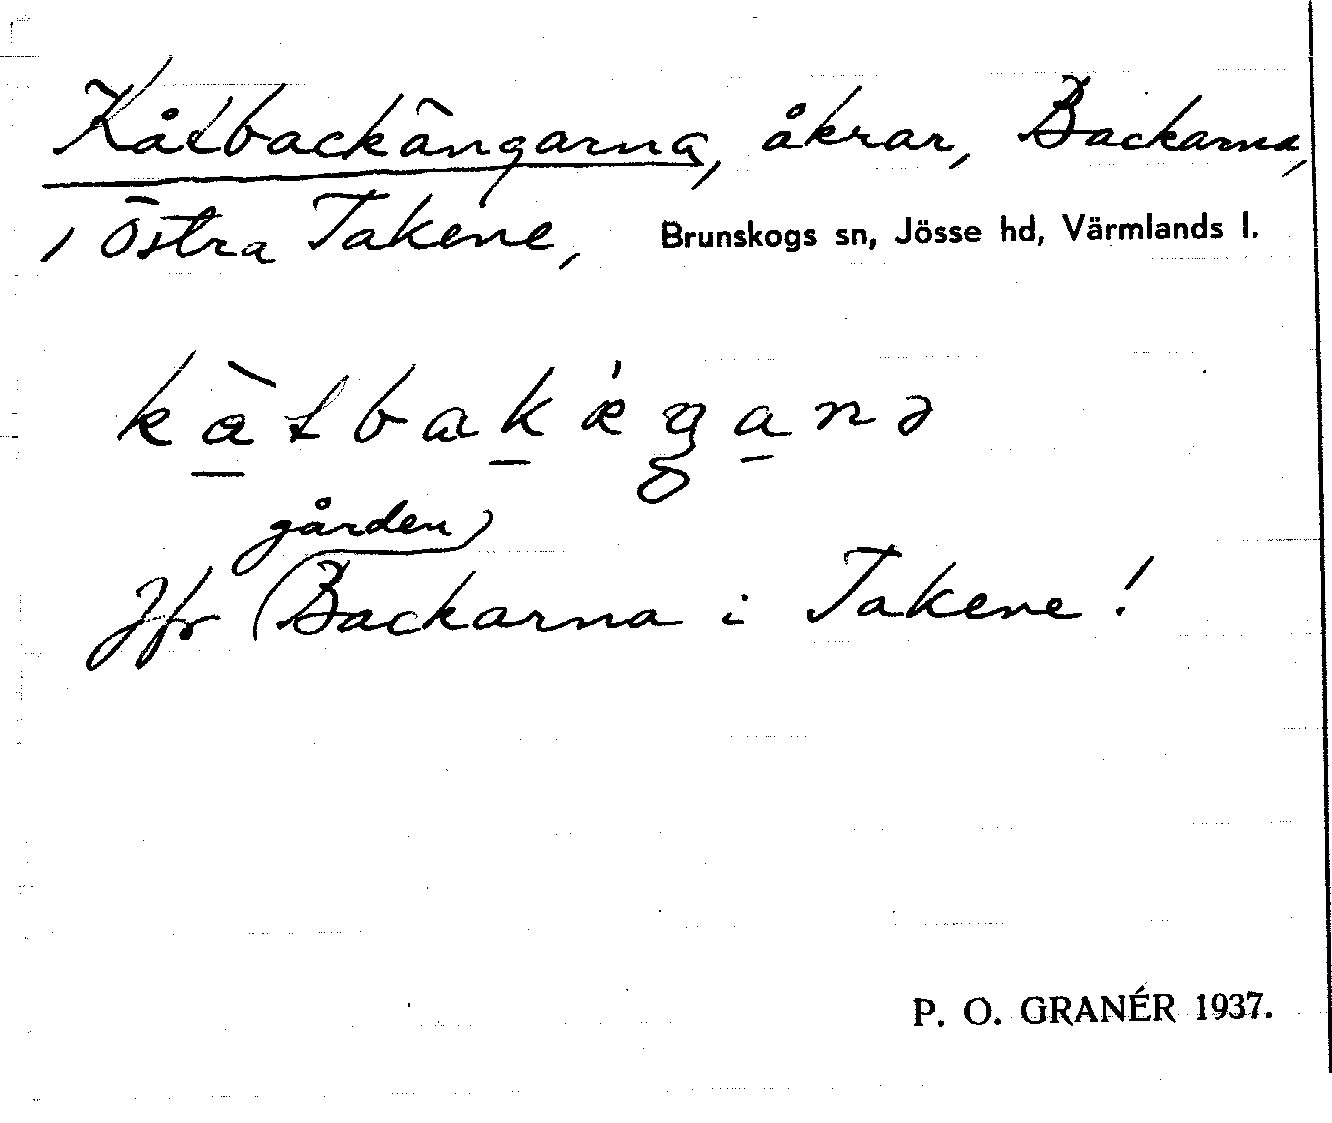 Kålbackängarna, åkrar, Backarna,
i Östra Takene, Brunskogs sn, Jösse hd, Värmlands l.
gården
Jfr Backarna i Takene!
P. O. GRANÉR 1937.